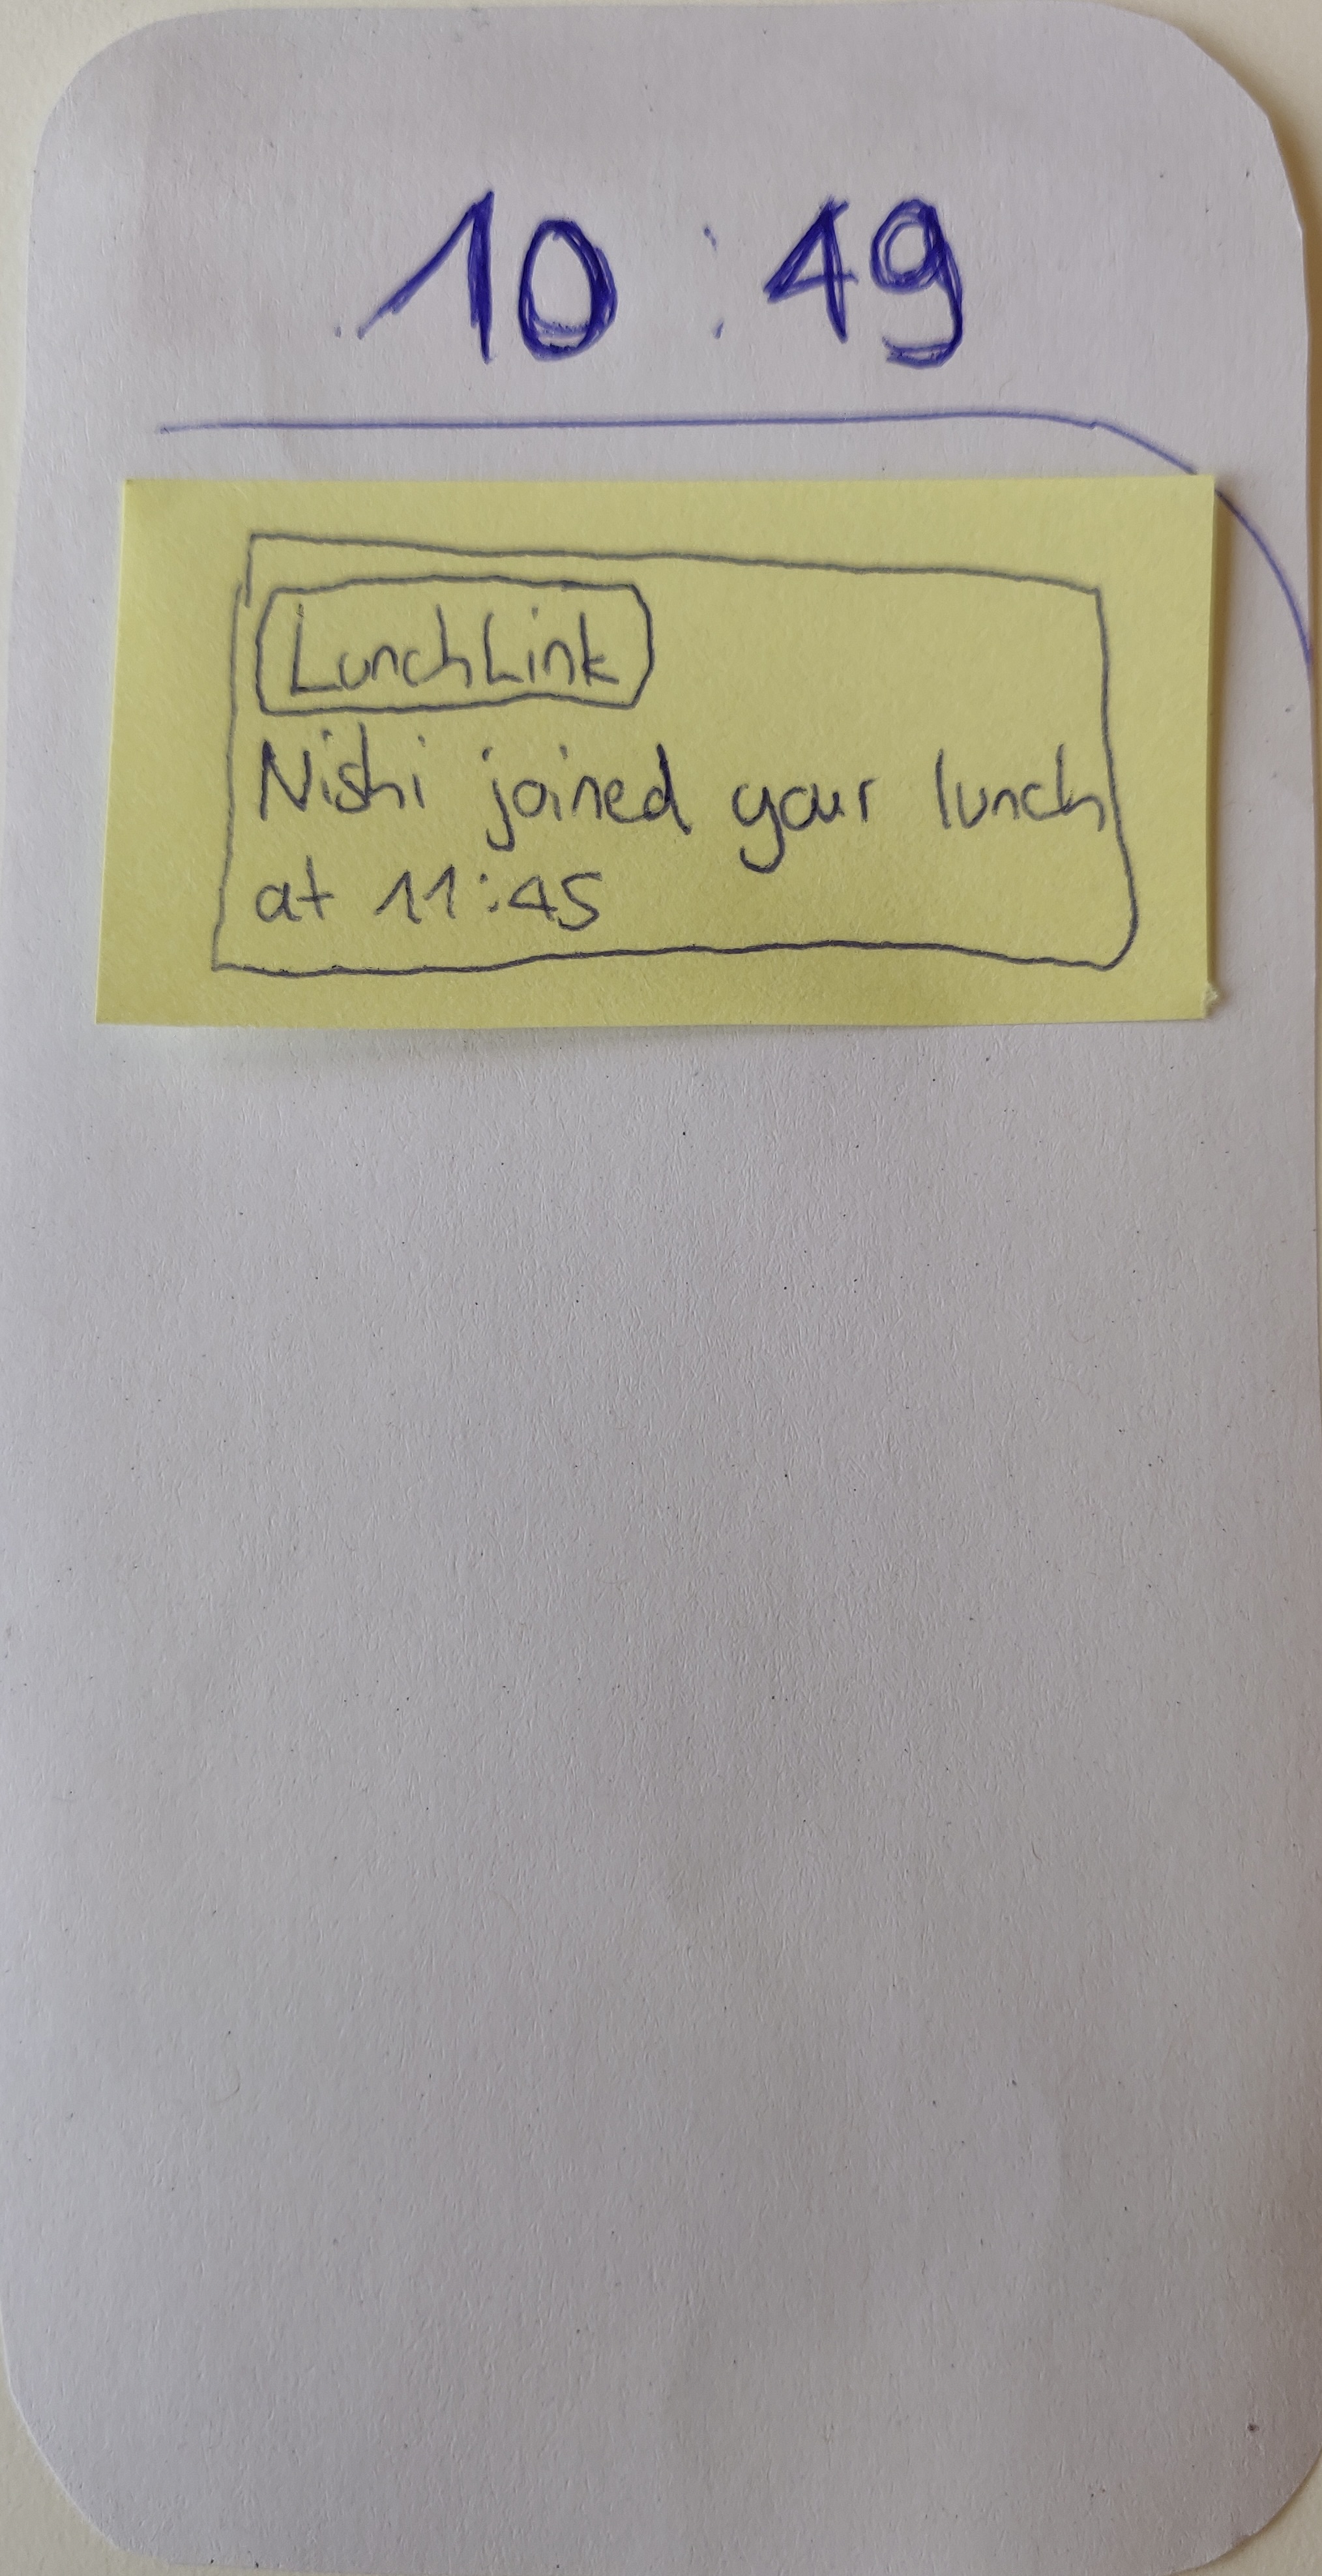 10:49
LunchLink
Nishi joined your lunch
at 11:45